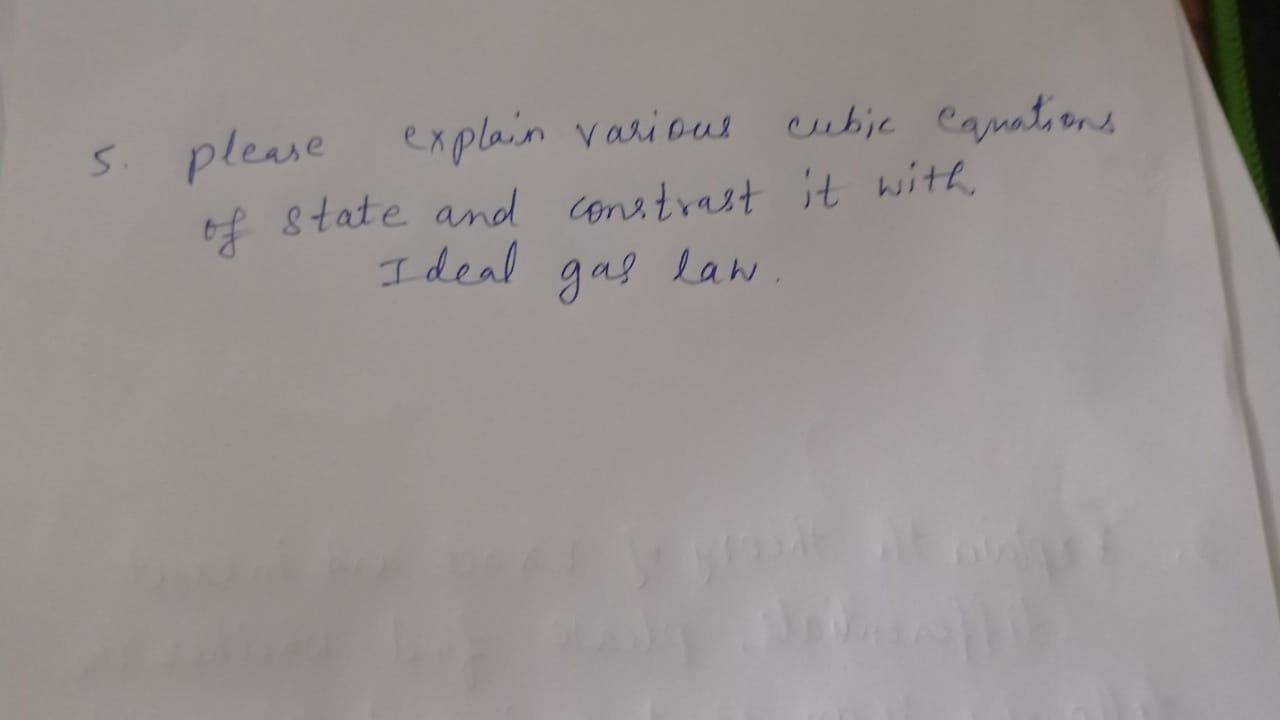 5. please explain various cubic equations
of state and constrast it with
Ideal gas law.